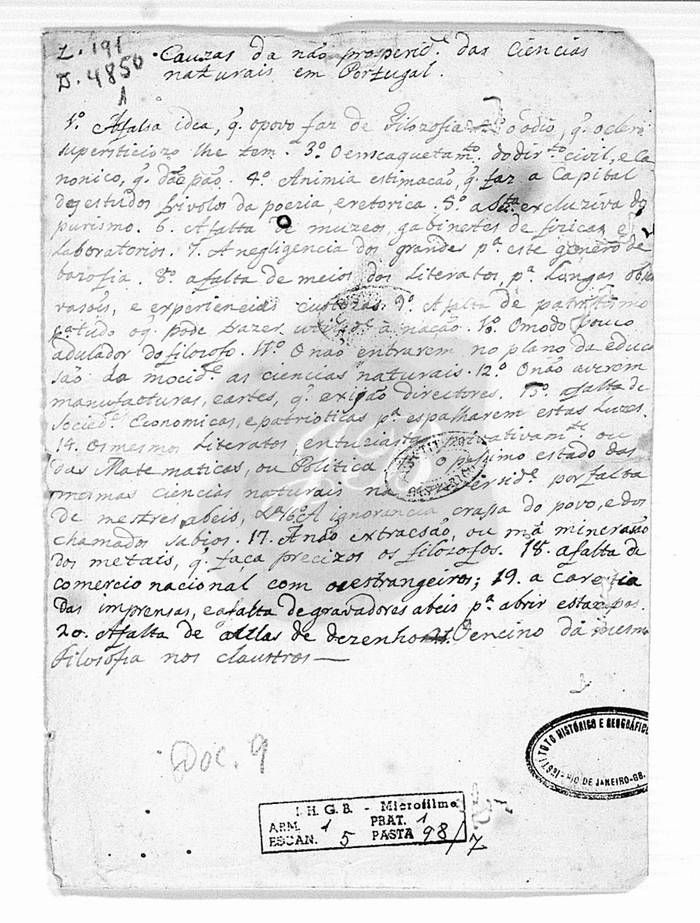 L. 191
D. 4850
1
Cauzas da não prosperid.e das Ciencias
naturais em Portugal.
1º. A falsa idea, q. o povo faz de Filozofia o odio, q. o clero
supersticiozo lhe tem. 3º. O emcaquetam.to do dir.to civil, e Ca
nonico, q. dão pão. 4º. A nimia estimacão, q. faz a Capital
dos estudos frivolos da poezia, e retorica. 5º. a exclusiva do
purismo. 6. A falta de muzeos, gabinetes de fizicas, e
Laboratorios. 7. A negligencia dos grandes p.a este genero de
bazofia. 8º. a falta de meios dos Literatos p.a Longas obser
vasois, e experiencias custozas. 9º. A falta de patriotismo
p.a tudo o q. pode trazer utilid.e a nação. 10º. O modo pouco
adulador do filozofo. 11º. O não entrarem no plano da educa
são da mocid.e as ciencias naturais. 12º. O não averem
manufacturas, e artes, q. exijão directores. 13º. a falta de
Socied.es Economicas, e patrioticas p.a espalharem estas Luzes.
14. Os mesmos Literatos, ou
das Matematicas, ou Politica 15º. O pessimo estado das
mesmas ciencias naturais na por falta
de mestres abeis, 16º. A ignorancia crasa do povo, e dos
chamados sabios. 17. A não extracsão, ou má minerasão
dos metais, q. faça precizos os filosofos. 18. a falta de
comercio nacional com os estrangeiros; 19. a carestia
das imprensas, e a falta de gravadores abeis p.a abrir estampas.
20. A falta de aullas de dezenho 21. O encino da mesma
Filosofia nos claustros —
Doc. 9
INSTITUTO HISTÓRICO E GEOGRÁFICO
RIO DE JANEIRO-GB.
I. H. G. B. - Microfilme
ARM. 1 PRAT. 1
ESCAN. 5 PASTA 98/7